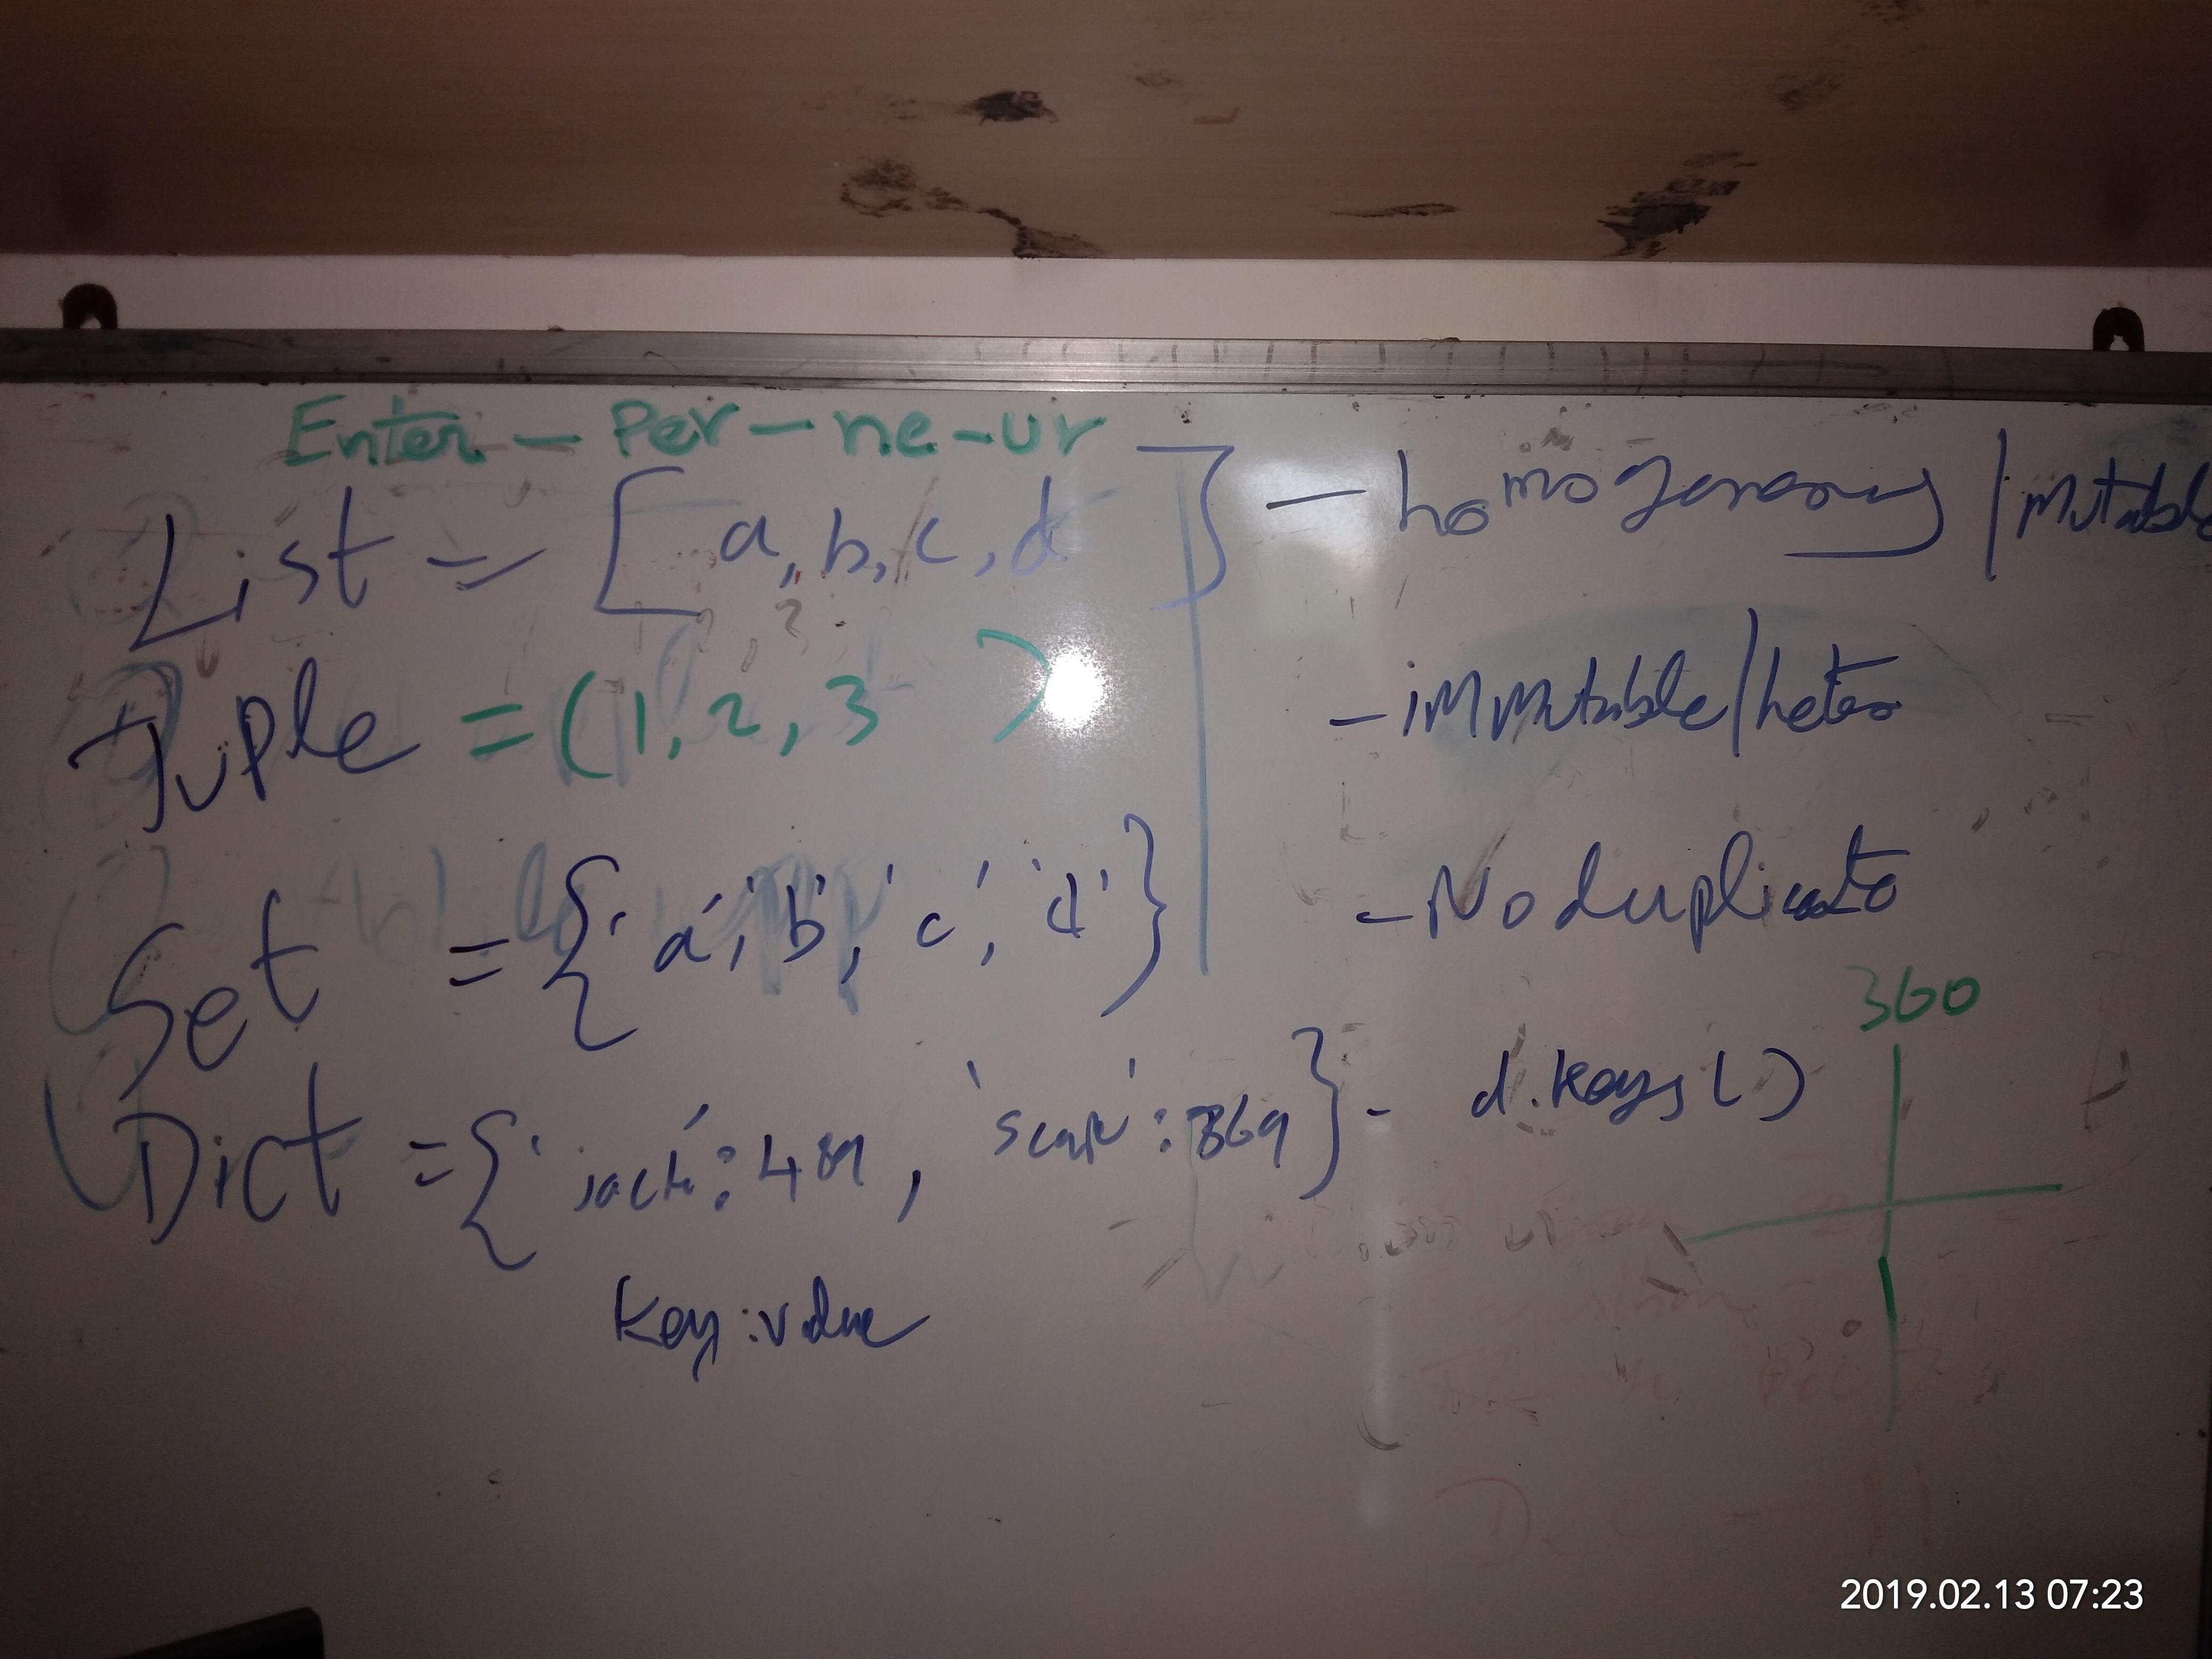 Enter - Per - ne - ur
List = [a, b, c, d] - homogeneous / mutable
Tuple = (1, 2, 3 ) - immutable / hetero
Set = {'a', 'b', 'c', 'd'} - No duplicate
360
Dict = {'jack': 489, 'scape': 869} - d.keys()
key:value
Dec - 11
2019.02.13 07:23